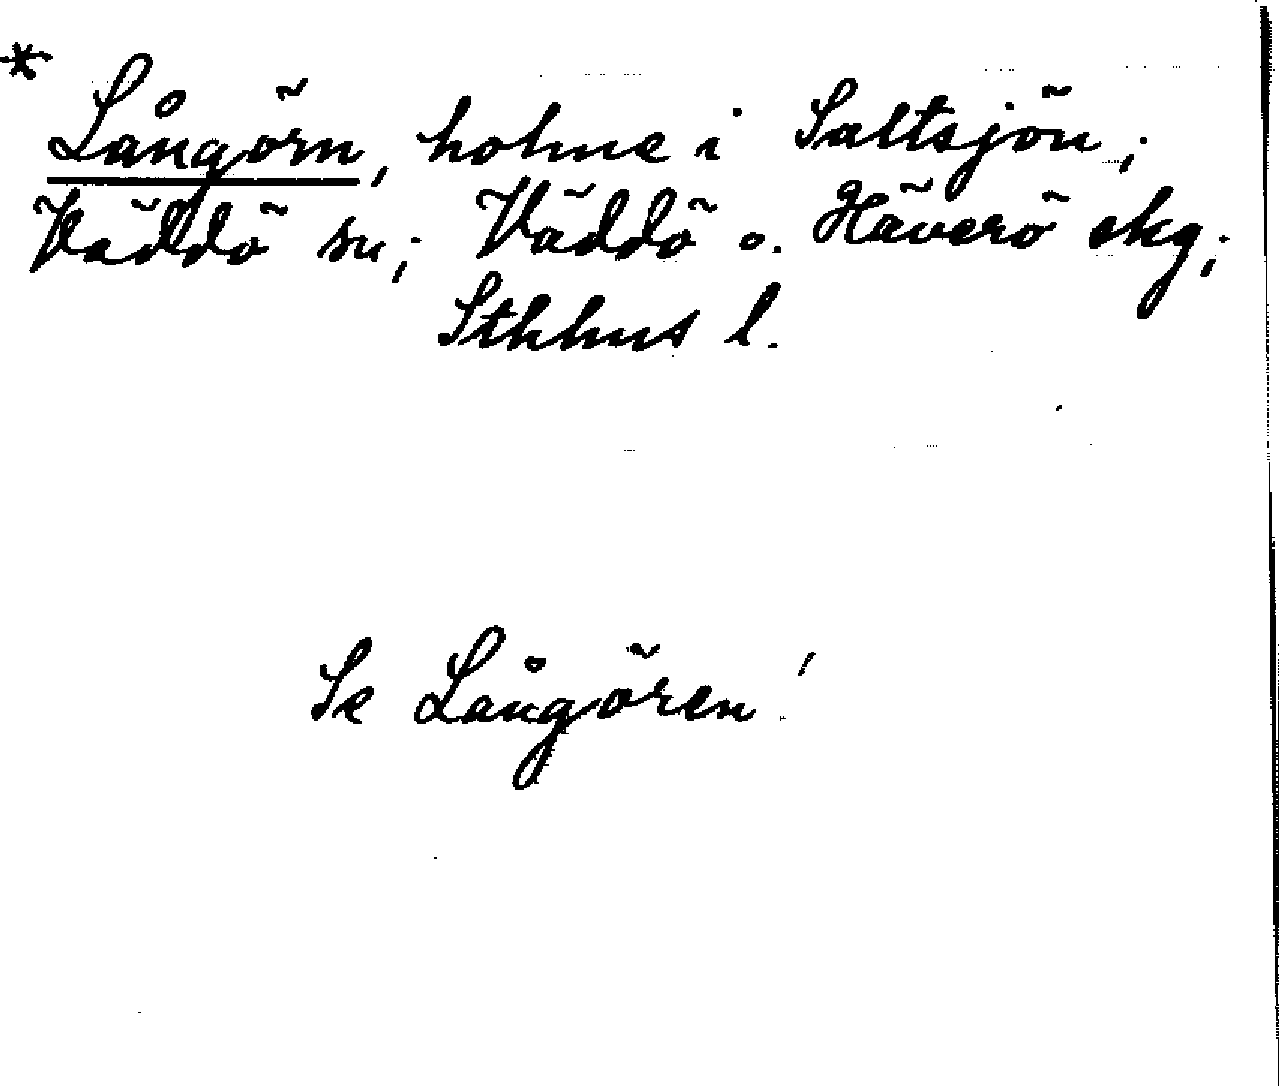 * Långörn, holme i Saltsjön;
Väddö sn; Väddö o. Häverö skg;
Sthlms l.
Se Långören!